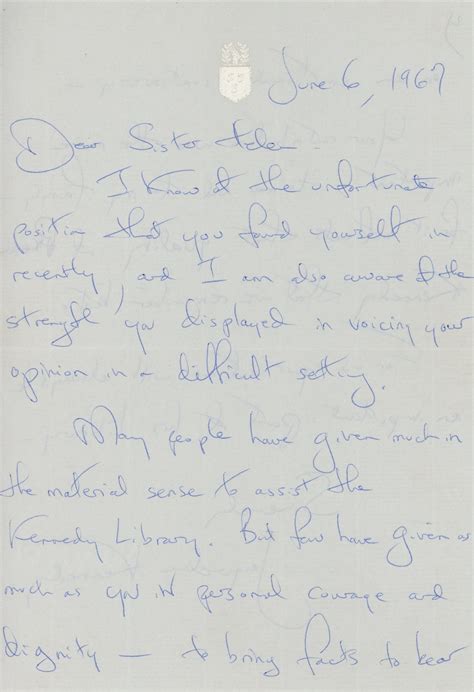 June 6, 1967
Dear Sister
I know of the unfortunate
position that you found yourself in
recently, and I am also aware of the
strength you displayed in voicing your
opinion in a difficult setting.
Many people have given much in
the material sense to assist the
Kennedy Library. But few have given as
much as you in personal courage and
dignity — to bring facts to bear